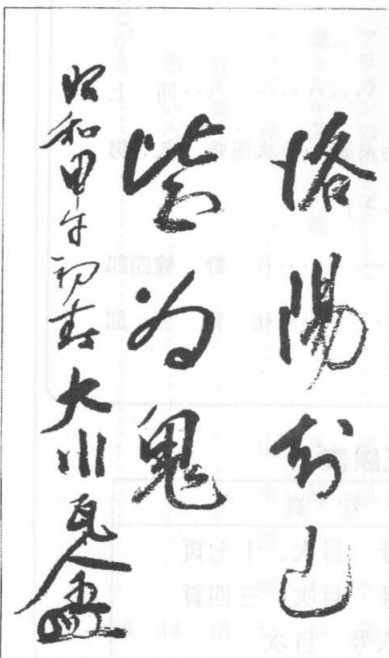 洛陽知己
皆為鬼
昭和甲午初春 大川瓦